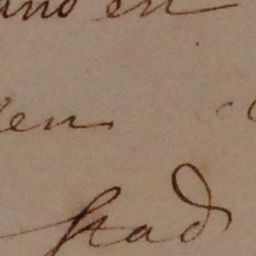 and en
en
stad